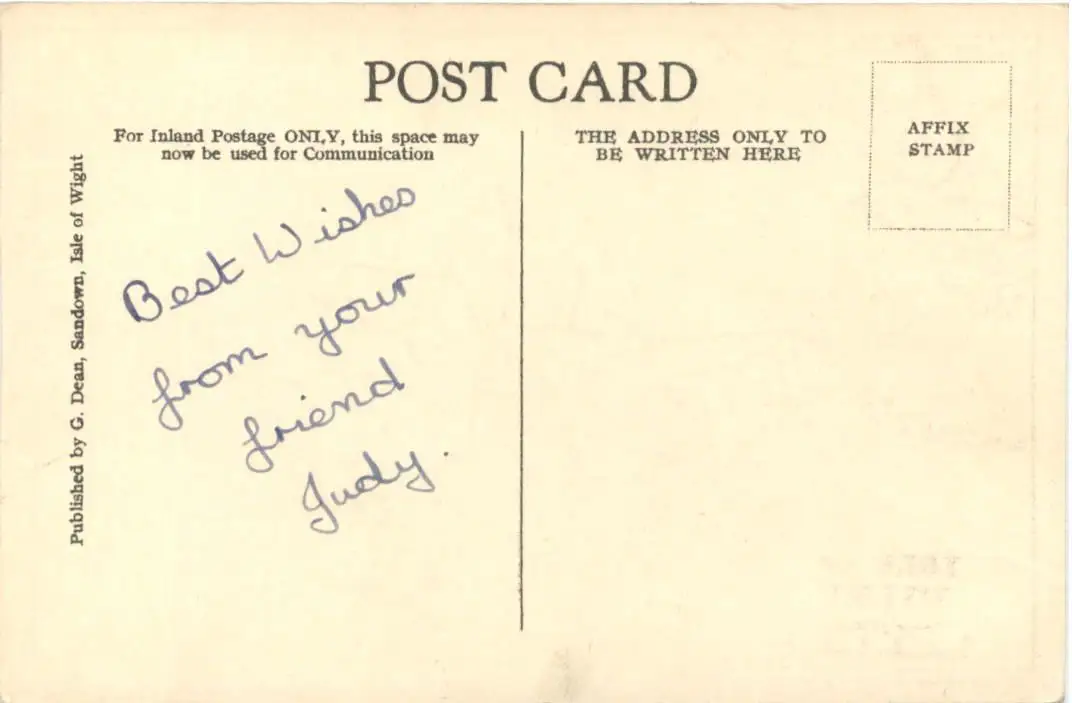 POST CARD
For Inland Postage ONLY, this space may
now be used for Communication
THE ADDRESS ONLY TO
BE WRITTEN HERE
AFFIX
STAMP
Published by G. Dean, Sandown, Isle of Wight
Best Wishes
from your
friend
Judy.